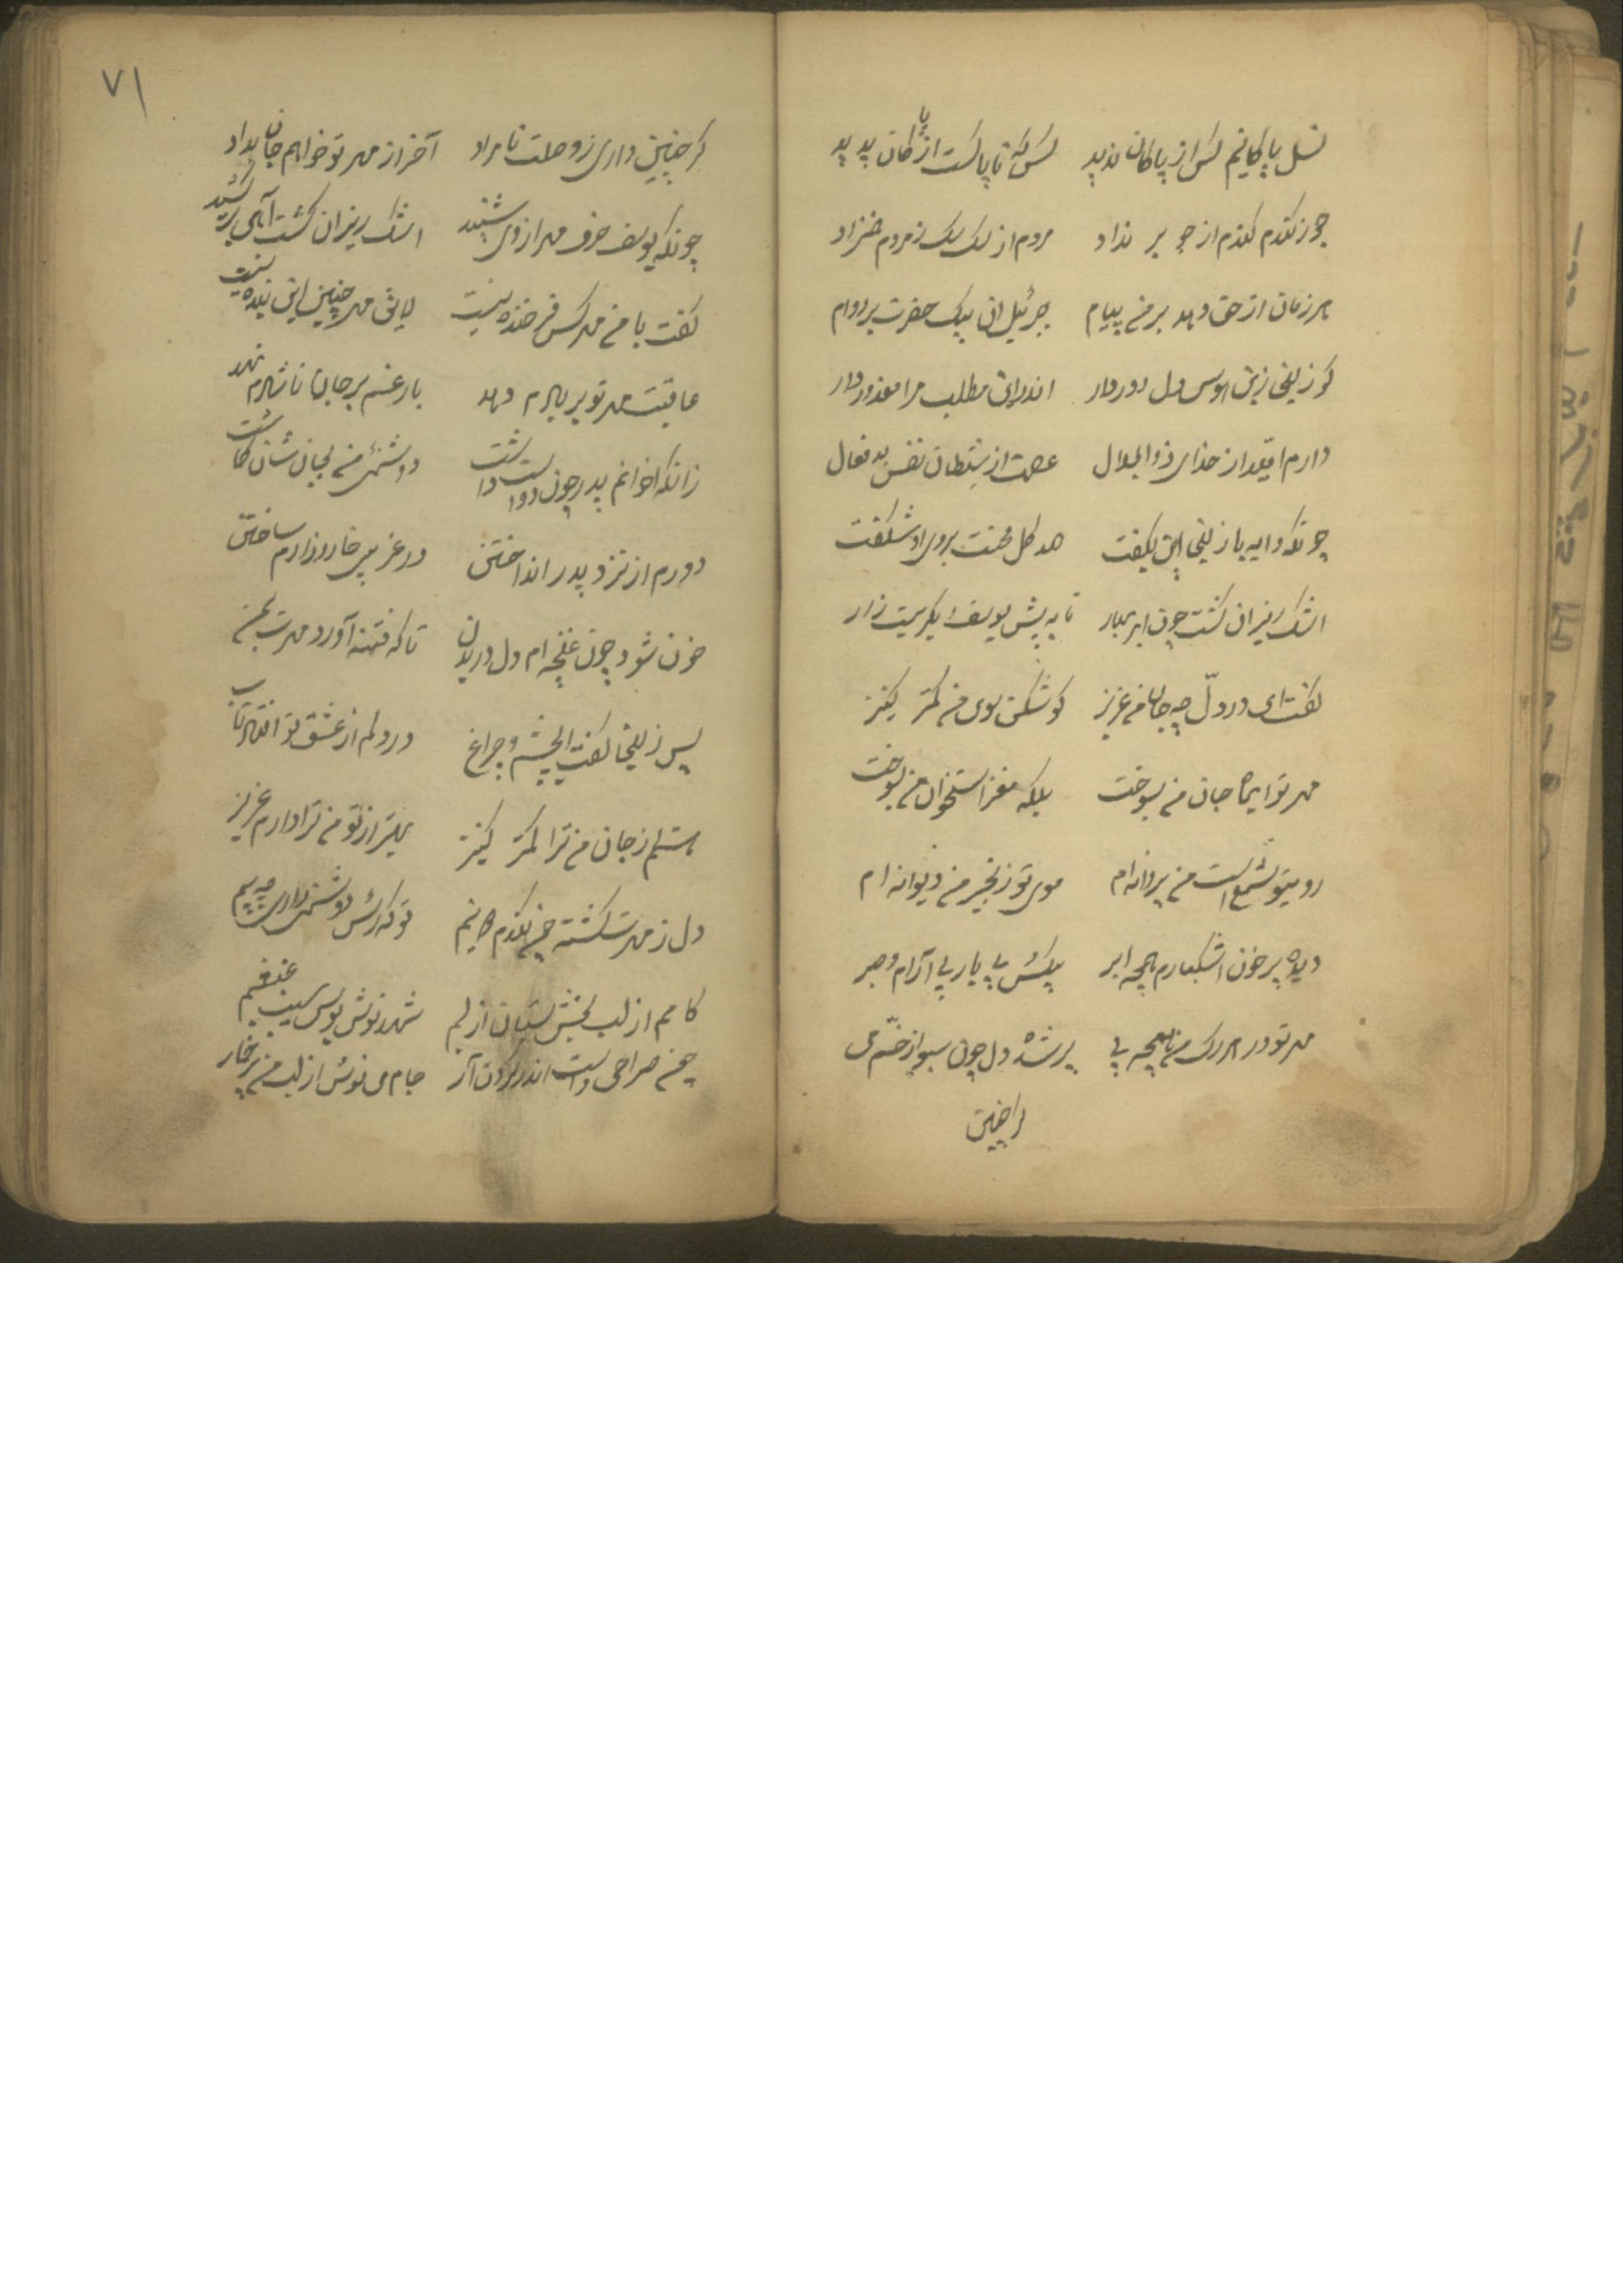 نسل پاکانیم کس از پاکان ندید کس که ناپاکست از پاکان پدید
جو ز گندم گندم از جو بر نداد مردم از سگ سگ ز مردم هم نزاد
هر زمان از حق دهد بر من پیام جبرئیل آن پیک حضرت بر دوام
کو زلیخا زین هوس دل دور دار اندر این مطلب مرا معذور دار
دارم امّید از خدای ذوالجلال عصمت از شیطان نفس بد فعال
چونکه دایه با زلیخا این بگفت صد گل محنت بروی او شکفت
اشک ریزان گشت چون ابر بهار تا به پیش یوسف بگریست زار
گفت ای درد دل چه جان من عزیز گوش کن سوی من کمتر کنیز
مهر تو ایماه جان من بسوخت بلکه مغز استخوان من بسوخت
روی تو شمع است من پروانه‌ام موی تو زنجیر من دیوانه‌ام
دیده پر خون اشکبارم همچه ابر بیکس بی یار بی آرام و صبر
مهر تو در هر رگ من همچه پی پر شده دل چون سبو از خمّ می
گر چنین
۷۱
گر چنین داری ز وصلت نامراد آخر از مهر تو خواهم جان بداد
چونکه یوسف حرف مهر از وی شنید اشک ریزان گشت آهی برکشید
گفت با من مهر کس فرخنده نیست لایق مهر چنین این بنده نیست
عاقبت مهر تو بر بادم دهد بار غم بر جان ناشادم نهد
زانکه اخوانم پدر چون دوست داشت دشمنی من بجان شان گماشت
دورم از نزد پدر انداختن در غریبی خار و زارم ساختن
خون شود چون غنچه‌ام دل در بدن تا که فتنه آورد مهرت بمن
پس زلیخا گفت ای چشم و چراغ در دلم از عشق تو افتاد تاب
هستم از جان من ترا کمتر کنیز بهتر از تو من ترا دارم عزیز
دل ز مهرت گشته چون گندم دو نیم تو که از کس دشمنی داری چه بیم
کامم از لب بخش بستان از لبم شهد نوش بوس سیب غبغبم
چون صراحی دست اندر گردن آر جام می نوش از لب من پر خمار